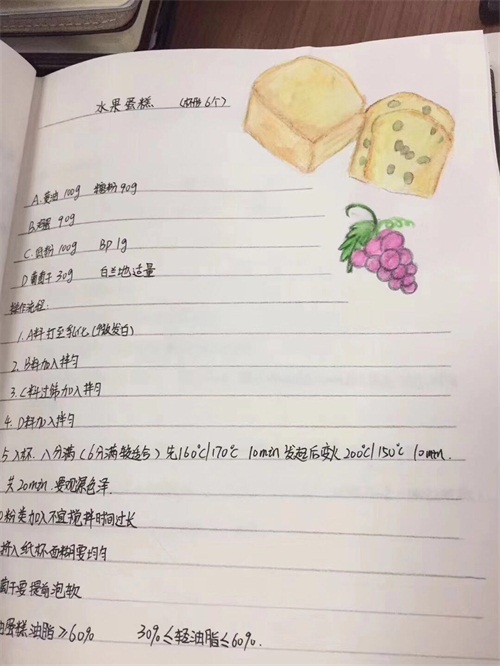 水果蛋糕 (杯 6个)
A.黄油 100g 糖粉 90g
B.鸡蛋 90g
C.低粉 100g BP 1g
D 葡萄干 30g 白兰地适量
操作流程:
1.A料打至乳化(微发白)
2.B料加入拌匀
3.C料过筛加入拌匀
4.D料加入拌匀
5入杯.八分满(6分满较适合)先160℃/170℃ 10min 发起后变火200℃/150℃ 10min.
共20min.要观察色泽.
粉类加入不宜搅拌时间过长
挤入纸杯面糊要均匀
萄干要提前泡软
油蛋糕油脂≥60% 30%≤轻油脂≤60%.